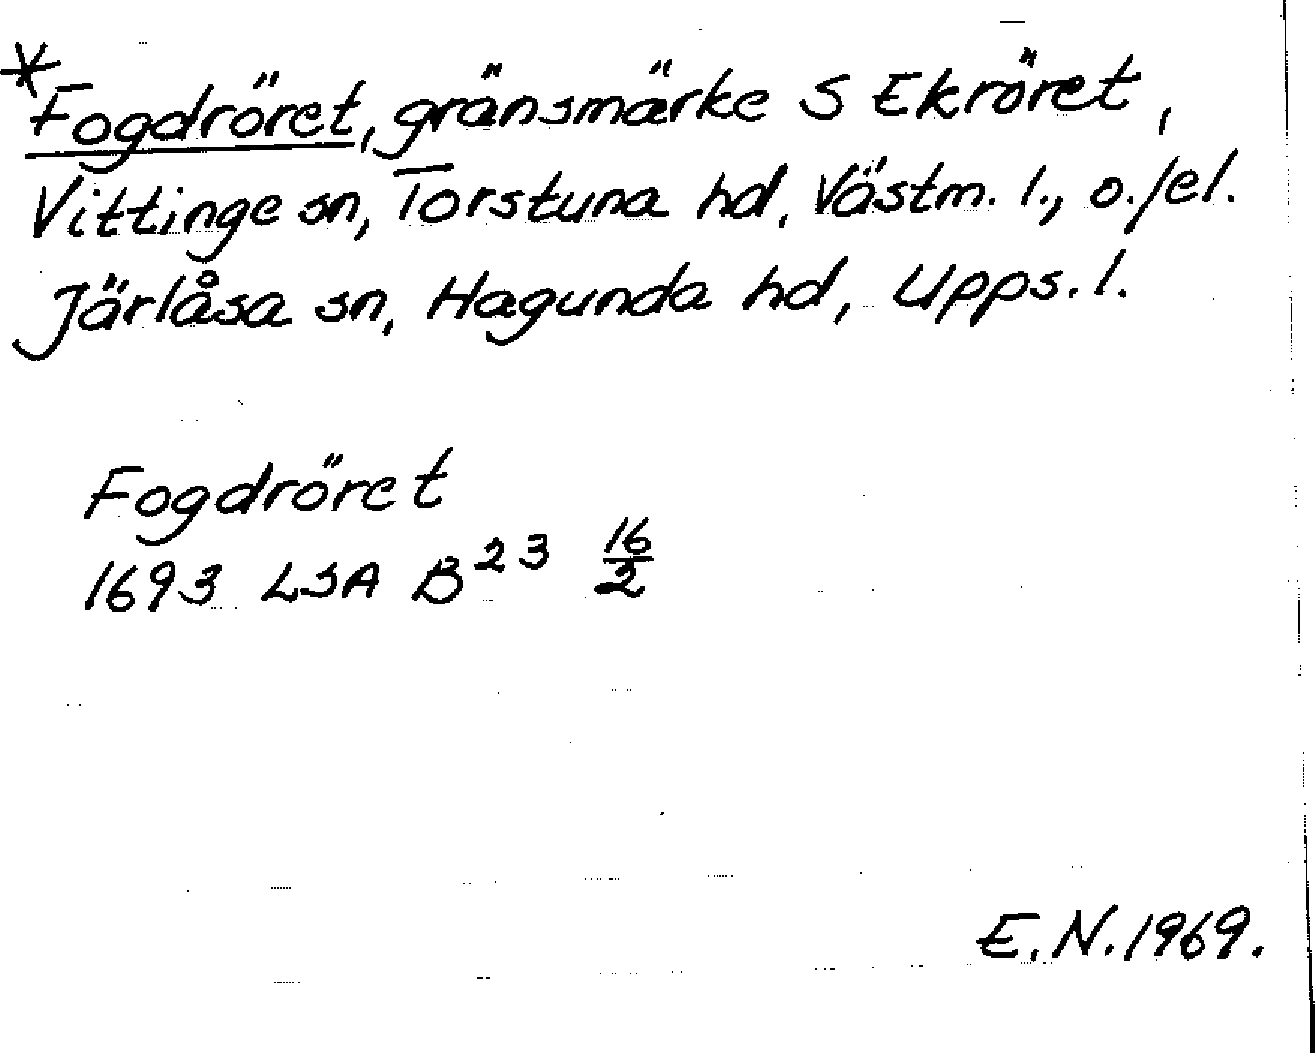 *Fogdröret, gränsmärke S Ekröret,
Vittinge sn, Torstuna hd, Västm. l., o./el.
Järlåsa sn, Hagunda hd, Upps. l.
Fogdröret
1693 LSA B²³ 16/2
E.N. 1969.